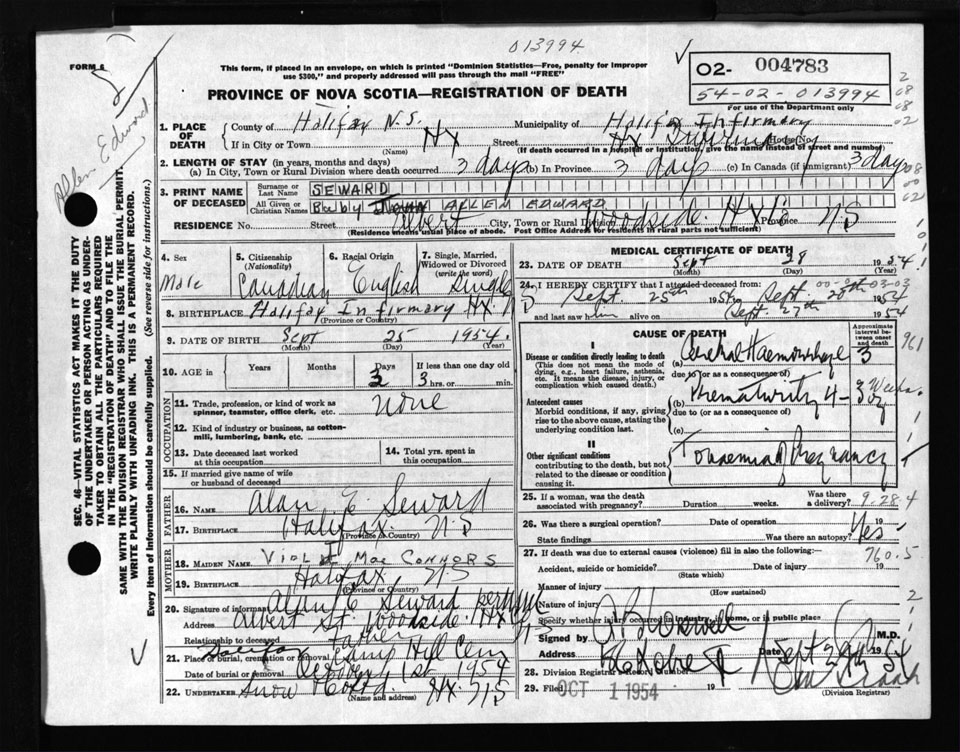 013994
FORM 6
This form, if placed in an envelope, on which is printed "Dominion Statistics—Free, penalty for improper
use $300," and properly addressed will pass through the mail "FREE"
PROVINCE OF NOVA SCOTIA—REGISTRATION OF DEATH
02- 004783
54-02-013994
For use of the Department only
Allen Edward
SEC. 46—VITAL STATISTICS ACT MAKES IT THE DUTY
OF THE UNDERTAKER OR PERSON ACTING AS UNDER-
TAKER TO OBTAIN ALL THE PARTICULARS REQUIRED
IN THE "REGISTRATION OF DEATH" AND TO FILE THE
SAME WITH THE DIVISION REGISTRAR WHO SHALL ISSUE THE BURIAL PERMIT.
WRITE PLAINLY WITH UNFADING INK. THIS IS A PERMANENT RECORD.
Every item of Information should be carefully supplied. (See reverse side for instructions.)
1. PLACE OF DEATH County of Halifax N.S. Municipality of Halifax Infirmary
If in City or Town HX Street HX Infirmary House No.
(Name) (If death occurred in a hospital or institution, give the name instead of street and number)
2. LENGTH OF STAY (in years, months and days)
(a) In City, Town or Rural Division where death occurred 3 days (b) In Province 3 days (c) In Canada (if immigrant) 3 days
3. PRINT NAME OF DECEASED Surname or Last Name SEWARD
All Given or Christian Names Baby ALLEN EDWARD
RESIDENCE No. Street Albert City, Town or Rural Division Woodside. HX Province NS
(Residence means usual place of abode. Post Office Address for residents in rural parts not sufficient)
4. Sex Male
5. Citizenship (Nationality) Canadian
6. Racial Origin English
7. Single, Married, Widowed or Divorced (write the word) Single
8. BIRTHPLACE Halifax Infirmary HX.
(Province or Country)
9. DATE OF BIRTH Sept 25 1954
(Month) (Day) (Year)
10. AGE in Years Months Days 3 If less than one day old 3 hrs. or min.
OCCUPATION
11. Trade, profession, or kind of work as spinner, teamster, office clerk, etc. none
12. Kind of industry or business, as cotton-mill, lumbering, bank, etc.
13. Date deceased last worked at this occupation
14. Total yrs. spent in this occupation
15. If married give name of wife or husband of deceased
FATHER
16. NAME Alan E. Seward
17. BIRTHPLACE Halifax N.S
(Province or Country)
MOTHER
18. MAIDEN NAME VIOLET Mae CONNORS
19. BIRTHPLACE Halifax NS
(Province or Country)
20. Signature of informant Alan E Seward per
Address Albert St. Woodside. HX NS
Relationship to deceased father
21. Place of burial, cremation or removal Halifax Camp Hill Cem
Date of burial or removal October 1st 1954
22. UNDERTAKER Snow HX. NS
MEDICAL CERTIFICATE OF DEATH
23. DATE OF DEATH Sept 28 1954
(Month) (Day) (Year)
24. I HEREBY CERTIFY that I attended deceased from
Sept. 25th 1954 to Sept. 28th 1954
and last saw him alive on Sept. 27th 1954
CAUSE OF DEATH Approximate interval between onset and death
I
Disease or condition directly leading to death
(This does not mean the mode of dying, e.g., heart failure, asthenia, etc. It means the disease, injury, or complication which caused death.)
(a) Cerebral Haemorrhage 3
due to (or as a consequence of)
Antecedent causes
Morbid conditions, if any, giving rise to the above cause, stating the underlying condition last.
(b) Prematurity 4- Weeks.
due to (or as a consequence of)
(c)
II
Other significant conditions contributing to the death, but not related to the disease or condition causing it.
Toxaemia of Pregnancy
961
25. If a woman, was the death associated with pregnancy? Duration weeks. Was there a delivery? 9.28.4
26. Was there a surgical operation? Date of operation 19
State findings Was there an autopsy? Yes
27. If death was due to external causes (violence) fill in also the following:— 760.5
Accident, suicide or homicide? Date of injury 19
(State which)
Manner of injury
(How sustained)
Nature of injury
Specify whether injury occurred in industry, in home, or in public place
Signed by M.D.
Address Date Sept 1954
28. Division Registrar's Record Number
29. Filed OCT 1 1954 19
(Division Registrar)